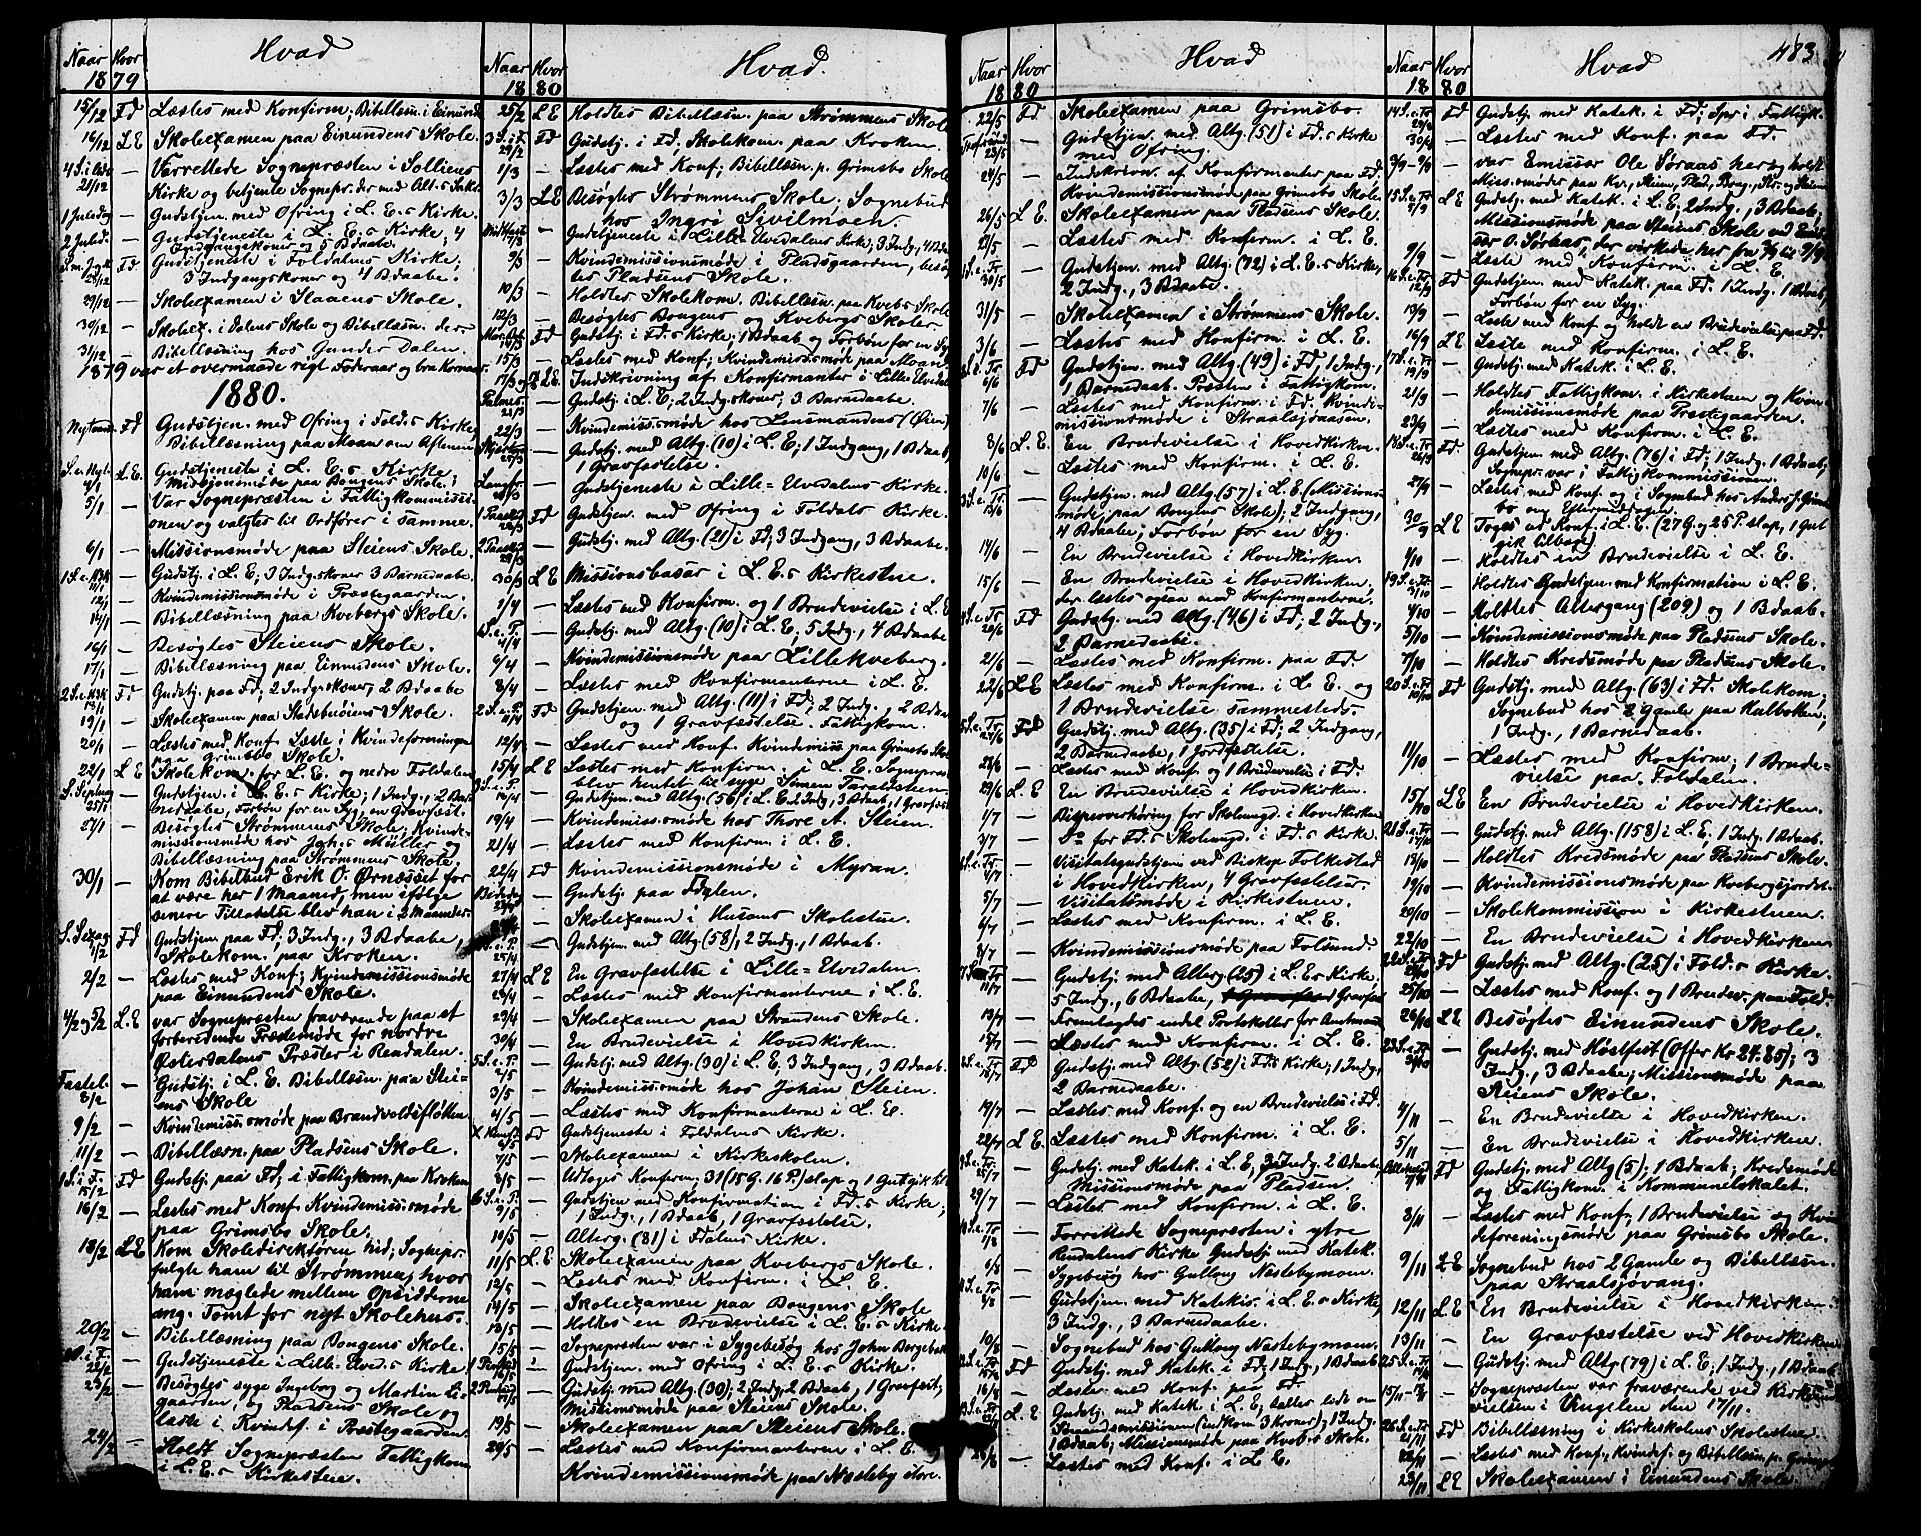 Naar Hvor Hvad
1879
15/12 Fd Læstes med Konfirm. Bibellæsn. i Einund.
16/12 LE Skoleexamen paa Einundens Skole.
21/12 — Forrettede Sognepræsten i Solliens
Kirke og betjente Sognepr. der med Alt. s Sakr.
1 Juledag — Gudstjen. med Ofring i L. E. s Kirke.
2 Juled. — Gudstjeneste i L. E. s Kirke; 4
Indgangskoner og 5 Bdaabe.
28/12 Fd. Gudstjeneste i Foldalens Kirke;
3 Indgangskoner og 4 Bdaabe.
29/12 — Skoleexamen i Slaaens Skole.
30/12 — Skoleex. i Dalens Skole og Bibellæsn. der.
31/12 — Bibellæsning hos Gunder Dalen.
1879 var et overmaade rigt Foderaar og bra Kornaar.
1880.
Nytaarsd. Fd Gudstjen. med Ofring i Fold. s Kirke,
Bibellæsning paa Moan om Aftenen
S. e. Nyt. 4/1 L. E. Gudstjeneste i L. E. s Kirke
Missionsmøde paa Bougens Skole;
5/1 — Var Sognepræsten i Fattigkommissi-
onen og valgtes til Ordfører i samme.
6/1 — Missionsmøde paa Steiens Skole.
1 S. e. H3K 11/1 — Gudstj. i L. E; 3 Indg. skoner 3 Barnedaabe.
12/1 — Kvindemissionsmøde i Præstegaarden.
14/1 — Bibellæsning paa Kvebergs Skole.
16/1 — Besøgtes Steiens Skole.
17/1 — Bibellæsning paa Einundens Skole.
2 S. e. H3K 18/1 Fd Gudstj. paa Fd; 2 Indg. skoner, 2 Bdaabe
19/1 — Skoleexamen paa Stadsbuøiens Skole.
20/1 — Læstes med Konf. Læste i Kvindeforeningen
paa Grimsbo Skole.
22/1 L E Skolekom. for L. E. og nedre Foldalen
S. Septuag 25/1 — Gudstjen. i L. E. s Kirke; 1 Indg., 2 Bar-
nedaabe, Forbøn for en Syg, en Gravfæst.
27/1 — Besøgtes Strømmens Skole; Kvinde-
missionsmøde hos Johs Müller og
Bibellæsning paa Strømmens Skole.
30/1 — Kom Bibelbud Erik O. Ørnæsset for
at være her 1 Maaned, men ifølge
senere Tilladelse blev han i 2 Maaneder.
S. Sexag 1/2 Fd Gudstjen. paa Fd; 3 Indg., 3 Bdaabe,
Skolekom. paa Kroken.
2/2 — Læstes med Konf; Kvindemissionsmøde
paa Einundens Skole.
4/2 og 5/2 L. E var Sognepræsten fraværende paa et
forberedende Prædemøde for nordre
Østerdalens Præster i Rendalen.
Fastel. 8/2 — Gudstj. i L. E. Bibellæsn. paa Stei-
ens Skole
9/2 — Kvindemiss. smøde paa Brandvoldsfløtten
11/2 — Bibellæsn. paa Pladsens Skole.
1 S. i F. 15/2 Fd Gudstj. paa Fd; i Fattigkom. paa Kroken
16/2 — Læstes med Konf. Kvindemiss. smøde
paa Grimsbo Skole.
18/2 LE Kom Skoledirektøren hid; Sognepr.
fulgte ham til Strømmen, hvor
ham mæglede mellem Opsidderne
ang. Tomt for nyt Skolehus.
20/2 — Bibellæsning paa Bougens Skole.
22/2 — Gudstjeneste i Lille Elved. s Kirke
23/2 — Besøgtes syge Ingeborg og Martin Li-
gaarden, og Pladsens Skole og
læste i Kvindef. i Præstegaarden.
24/2 — Holdt Sognepræsten Fattigkom
i L. E. s Kirkestue.
Naar Hvor Hvad.
1880
25/2 LE Holdtes Bibellæsn. paa Strømmens Skole
3 S. i F. 29/2 Fd Gudstj. i Fd. Skolekom. paa Kroken.
1/3 — Læstes med Konf; Bibellæsn. p. Grimsbo Skole
3/3 LE Besøgtes Strømmens Skole. Sognebud
hos Ingrí Sivilmoen.
Midfaste 7/3 — Gudstjeneste i Lille Elvedalens Kirk; 3 Indg, 4 Bdaabe
9/3 — Kvindemissionsmøde i Pladsgaarden, besøg-
tes Pladsens Skole.
10/3 — Holdtes Skolekom. Bibellæsn. paa Kvebs Skole
12/3 — Besøgtes Bougens og Kvebergs Skoler
Fd Gudstj. i Fd. s Kirke; 1 Bdaab og Forbøn for en Syg
15/3 — Læstes med Konf; Kvindemiss. smøde paa Moan
17/3 LE. Indskrivning af Konfirmanter i Lille Elvedal
Palmes. 21/3 — Gudstj. i L. E; 2 Indg. skoner, 3 Barnedaabe.
22/3 — Kvindemiss. smøde hos Lensmandens (Øien)
25/3 — Gudstj. med Altg. (10) i L. E; 1 Indgang, 1 Bdaab,
1 Gravfæstelse.
Langfr. — Gudstjeneste i Lille-Elvedalens Kirke.
1 Paaskd 28/3 Fd Gudstjen. med Ofring i Foldals Kirke.
2 Paaskd 29/3 — Gudstj. med Altg. (21) i Fd; 3 Indgang, 3 Bdaabe.
30/3 LE Missionsbasar i L. E. s Kirkestue.
1/4 — Læstes med Konfirm. og 1 Brudevielse i L. E
4/4 — Gudstj. med Altg. (10) i L. E; 5 Indg., 4 Bdaabe
6/4 — Kvindemissionsmøde paa Lillekveberg.
8/4 — Læstes med Konfirmanterne i L. E.
Fd Gudstjen. med Altg. (11) i Fd; 2 Indg., 2 Bdaabe
og 1 Gravfæstelse. Fattigkom.
12/4 — Læstes med Konf. Kvindemiss. paa Grimsbo Skole
15/4 LE Læstes med Konfirm. i L. E. Sognepræs.
blev hentet til syge Simen Taraldsteen.
— Gudstjen. med Altg. (56) i L. E 2 Indg, 3 Bdaab, 1 Gravfæst.
19/4 — Kvindemiss. smøde hos Thore A. Steien.
21/4 — Læstes med Konfirm. i L. E.
22/4 Fd Kvindemissionsmøde i Myran.
— Gudstj. paa Fdalen.
— Skoleexamen i Husoms Skolestue.
25/4 — Gudstjen. med Altg. (58), 2 Indg., 1 Bdaab.
27/4 LE En Gravfæstelse i Lille-Elvedalen.
28/4 — Læstes med Konfirmanterne i L. E.
29/4 — Skoleexamen paa Strandens Skole.
30/4 — En Brudevielse i Hovedkirken.
— Gudstj. med Altg. (30) i L. E, 3 Indgang, 3 Bdaab.
3/5 — Kvindemiss. smøde hos Johan Steien.
4/5 — Læstes med Konfirmanterne i L. E.
6/5 Fd Gudstjeneste i Foldalens Kirke.
7/5 — Skoleexamen i Kirkeskolen.
8/5 — Udtoges Konfirm. 31 (15 G. 16 P.) slap og 1 Gut gik til.
6 S. e. P. 9/5 — Gudstjen med Konfirmation i Fd. s Kirke;
1 Indg., 1 Bdaab, 1 Gravfæstelse.
10/5 — Alterg. (81) i Fdalens Kirke.
11/5 L. E Skoleexamen paa Kvebergs Skole.
12/5 — Læstes med Konfirm. i L. E.
14/5 — Skoleexamen paa Bougens Skole
13/5 — Holdtes en Brudevielse i L. E. s Kirke.
15/5 — Sognepræsten var i Sygebesøg hos John Borgebak
16/5 — Gudstjen. med Ofring i L. E. s Kirke.
17/5 — Gudstj med Altg. (30); 2 Indg, 2 Bdaab, 1 Gravfæst;
Missionsmøde paa Steiens Skole.
19/5 — Skoleexamen paa Steiens Skole.
20/5 — Læstes med Konfirmanterne i L. E.
Kvindemissionsmøde paa Næsteby store
Naar Hvor Hvad
1880
22/5 Fd Skoleexamen paa Grimsbo.
23/5 — Gudstjen. med Altg. (51) i Fd. s Kirke
med Ofring.
24/5 — Indskrivn. af Konfirmanter paa Fd.
Kvindemissionsmøde paa Grimsbo Skole.
26/5 L E. Skoleexamen paa Pladsens Skole.
27/5 — Læstes med Konfirm. i L. E.
1 S. e. Tr 30/5 — Gudstjen. med Altg. (72) i L. E. s Kirke,
2 Indg., 3 Bdaabe.
31/5 — Skoleexamen i Strømmens Skole.
3/6 — Læstes med Konfirm. i L. E.
6/6 Fd Gudstjen. med Altg. (49) i Fd, 1 Indg.,
1 Barnedaab. Præsten i Fattigkom.
7/6 — Læstes med Konfirm. i Fd. Kvinde-
missionsmøde i Straalsjøaasen.
8/6 L. E. En Brudevielse i Hovedkirken.
10/6 — Læstes med Konfirm. i L. E.
3 S. e. Tr. 13/6 — Gudstjen. med Altg. (57) i L. E. (Missions-
møde paa Bougens Skole); 2 Indgang,
4 Bdaabe; Forbøn for en Syg.
14/6 — En Brudevielse i Hovedkirken
15/6 — En Brudevielse i Hovedkirken,
der læstes ogsaa med Konfirmanterne.
4 S. e. Tr 20/6 Fd Gudstj. med Altg. (46) i Fd; 2 Indg.,
2 Barnedaabe.
21/6 — Læstes med Konfirm. paa Fd.
22/6 LE Læstes med Konfirm. i L. E. og
1 Brudevielse sammesteds.
5 S. e. Tr. Fd Gudstj. med Altg. (35) i Fd; 2 Indgang,
2 Barnedaabe, 1 Jordfæstelse.
28/6 — Læstes med Konf. og 1 Brudevielse i Fd.
29/6 L. E En Brudevielse i Hovedkirken.
1/7 — Bispeoverhøring for Skoleungd. i Hovedkirken
3/7 — Do for Fd. s Skoleungd. i Fd. s Kirke.
4/7 — Visitatsgudstjen ved Biskop Folkestad
i Hovedkirken, 4 Gravfæstelser.
5/7 — Visitatsmøde i Kirkestuen.
6/7 — Læstes med Konfirm. i L. E.
8/7 — Kvindemissionsmøde paa Folund.
11/7 — Gudstj. med Alterg. (25) i L. E. s Kirke.
5 Indg., 6 Bdaabe, Gravfæst
13/7 — Fremlagdes endel Protokoller for Amtmand
15/7 — Læstes med Konfirm. i L. E.
18/7 Fd Gudstj. med Altg. (52) i Fds Kirke, 1 Indg.,
2 Barnedaabe.
19/7 — Læstes med Konf. og en Brudevielse i Fd.
22/7 LE. Læstes med Konfirm. i L. E.
25/7 — Gudstj. med Katek. i L. E; 3 Indg. 2 Bdaab,
Missionsmøde paa Pladsen.
29/7 — Læstes med Konfirm. i L. E.
1/8 — Forrettede Sognepræsten i ytre
Rendalens Kirke Gudstj med Katek.
6/8 — Sygebesøg hos Guttorg Næstebymoen.
8/8 — Gudstjen. med Katekis. i L. E. s Kirke,
3 Indg., 3 Barnedaabe.
10/8 — Sognebud hos Guttorg Næstebymoen.
15/8 Fd Gudstj. med Katek. i Fd, 1 Indg., 1 Bdaab
16/8 — Læstes med Konf. paa Fd.
L. E. Gudstj. med Katek. i L. E;
(indkom 3 Kroner); 1 Indg.
1 Bdaab; Missionsmøde paa Kvebs Skole.
26/8 — Læstes med Konf. i L E.
Naar Hvor Hvad 483
1880
14 S. e. Tr 29/8 Fd Gudstj. med Katek. i Fd; Spr. i Fattigk.
30/8 — Læstes med Konf. paa Fd.
3/9-9/9 — var Emissær Ole Søraas her og holdt
Miss. smøder paa Kv., Steien, Plads, Boug., Str. og Steien
15 S. e. Tr 5/9 LE Gudstj. med Katek. i L. E; 2 Indg., 3 Bdaab;
Missionsmøde paa Steiens Skole ved Emis-
sær O. Søraas, der virkede her fra 3/9 til 9/9.
9/9 — Læste med Konfirm. i L. E.
16 S. e. Tr. 12/9 Fd Gudstj. med Katek. paa Fd. 1 Indg. 1 Bdaab,
Forbøn for en Syg.
13/9 — Læste med Konf. og holdt en Brudevielse paa Fd.
16/9 LE Læste med Konfirm. i L. E.
17 S. e. Tr. 19/9 — Gudstj. med Katek. i L. E.
21/9 — Holdtes Fattigkom. i Kirkestuen og Kvin-
demissionsmøde paa Præstegaarden.
23/9 — Læstes med Konfirm. i L. E.
18 S. e. Tr 26/9 Fd. Gudstj. med Altg. (76) i Fd; 1 Indg. 1 Bdaab;
Sognepr. var i Fattigkommissionen.
27/9 — Læstes med Konf. og i Sognebud hos Anders J. Grims-
bo om Eftermiddagen.
30/9 LE Toges ud Konf. i L. E. (27 G. og 25 P. slap, 1 Gut
gik tilbage)
1/10 — Holdtes en Brudevielse i L. E.
19 S. e. Tr. 3/10 — Holdtes Gudstjen. med Konfirmation i L. E.
4/10 — Holdtes Altergang (209) og 1 Bdaab.
5/10 — Kvindemissionsmøde paa Pladsens Skole.
7/10 — Holdtes Kredsmøde paa Pladsens Skole.
20 S. e. Tr 10/10 Fd Gudstj. med Altg. (63) i Fd. Skolekom;
Sognebud hos 2 Gamle paa Kalbækken;
1 Indg., 1 Barnedaab.
11/10 — Læstes med Konfirm; 1 Brude-
vielse paa Foldalen.
15/10 LE En Brudevielse i Hovedkirken.
21 S. e. Tr 17/10 — Gudstj. med Altg. (158) i L. E; 1 Indg. 1 Bdaab.
18/10 — Holdtes Kredsmøde paa Pladsens Skole.
19/10 — Kvindemissionsmøde paa Kvebergsjordet.
20/10 — Skolekommission i Kirkestuen.
22/10 — En Brudevielse i Hovedkirken.
22 S. e. Tr. 24/10 Fd Gudstj. med Altg. (25) i Fold. s Kirke.
25/10 — Læstes med Konf. og 1 Brudev. paa Fold.
26/10 LE Besøgtes Einundens Skole.
23 S. e. Tr 31/10 — Gudstj. med Høstfest (Offer Kr 27.85); 3
Indg., 3 Bdaabe; Missionsmøde paa
Steiens Skole.
4/11 — En Brudevielse i Hovedkirken.
5/11 — En Brudevielse i Hovedkirken.
7/11 Fd Gudstj. med Altg (5); 1 Bdaab; Kredsmøde
og Fattigkom. i Kommunelokalet.
8/11 — Læstes med Konf, 1 Brudevielse og Kvin-
deforeningsmøde paa Grimsbo Skole.
9/11 LE Sognebud hos 2 Gamle og Bibellæsn.
paa Straalsjøvang.
12/11 L. E En Brudevielse i Hovedkirken
13/11 — En Gravfæstelse ved Hovedkirken
25 S. e. Tr 14/11 — Gudstj. med Altg (79) i L. E; 1 Indg., 1 Bdaab
15/11-18/11 — Sognepræsten var fraværende ved Kirkeind-
vielsen i Vingelen den 17/11.
26 S. e. Tr 21/11 Fd Bibellæsning i Kirkeskolens Skolestue.
22/11 — Læstes med Konf., Kvindef. og Bibellæsn. p. Grimsbo
23/11 LE Skoleexamen i Einundens Skole.